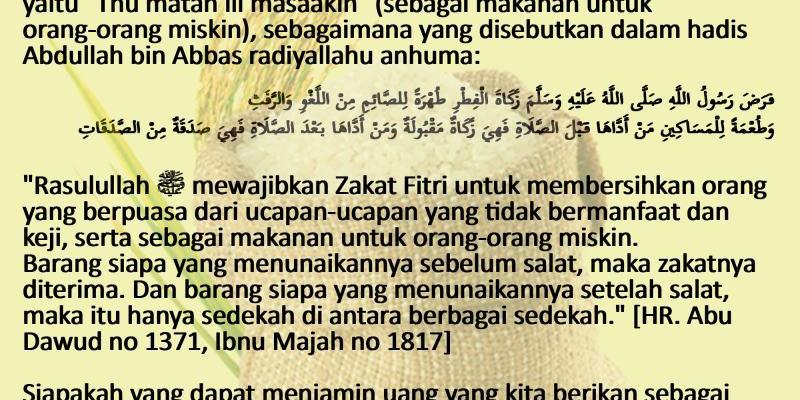 yaitu "Thu'matan lil masaakin" (sebagai makanan untuk
orang-orang miskin), sebagaimana yang disebutkan dalam hadis
Abdullah bin Abbas radiyallahu anhuma:
فَرَضَ رَسُولُ اللَّهِ صَلَّى اللَّهُ عَلَيْهِ وَسَلَّمَ زَكَاةَ الْفِطْرِ طُهْرَةً لِلصَّائِمِ مِنْ اللَّغْوِ وَالرَّفَثِ
وَطُعْمَةً لِلْمَسَاكِينِ مَنْ أَدَّاهَا قَبْلَ الصَّلَاةِ فَهِيَ زَكَاةٌ مَقْبُولَةٌ وَمَنْ أَدَّاهَا بَعْدَ الصَّلَاةِ فَهِيَ صَدَقَةٌ مِنْ الصَّدَقَاتِ
"Rasulullah ﷺ mewajibkan Zakat Fitri untuk membersihkan orang
yang berpuasa dari ucapan-ucapan yang tidak bermanfaat dan
keji, serta sebagai makanan untuk orang-orang miskin.
Barang siapa yang menunaikannya sebelum salat, maka zakatnya
diterima. Dan barang siapa yang menunaikannya setelah salat,
maka itu hanya sedekah di antara berbagai sedekah." [HR. Abu
Dawud no 1371, Ibnu Majah no 1817]
Siapakah yang dapat menjamin uang yang kita berikan sebagai